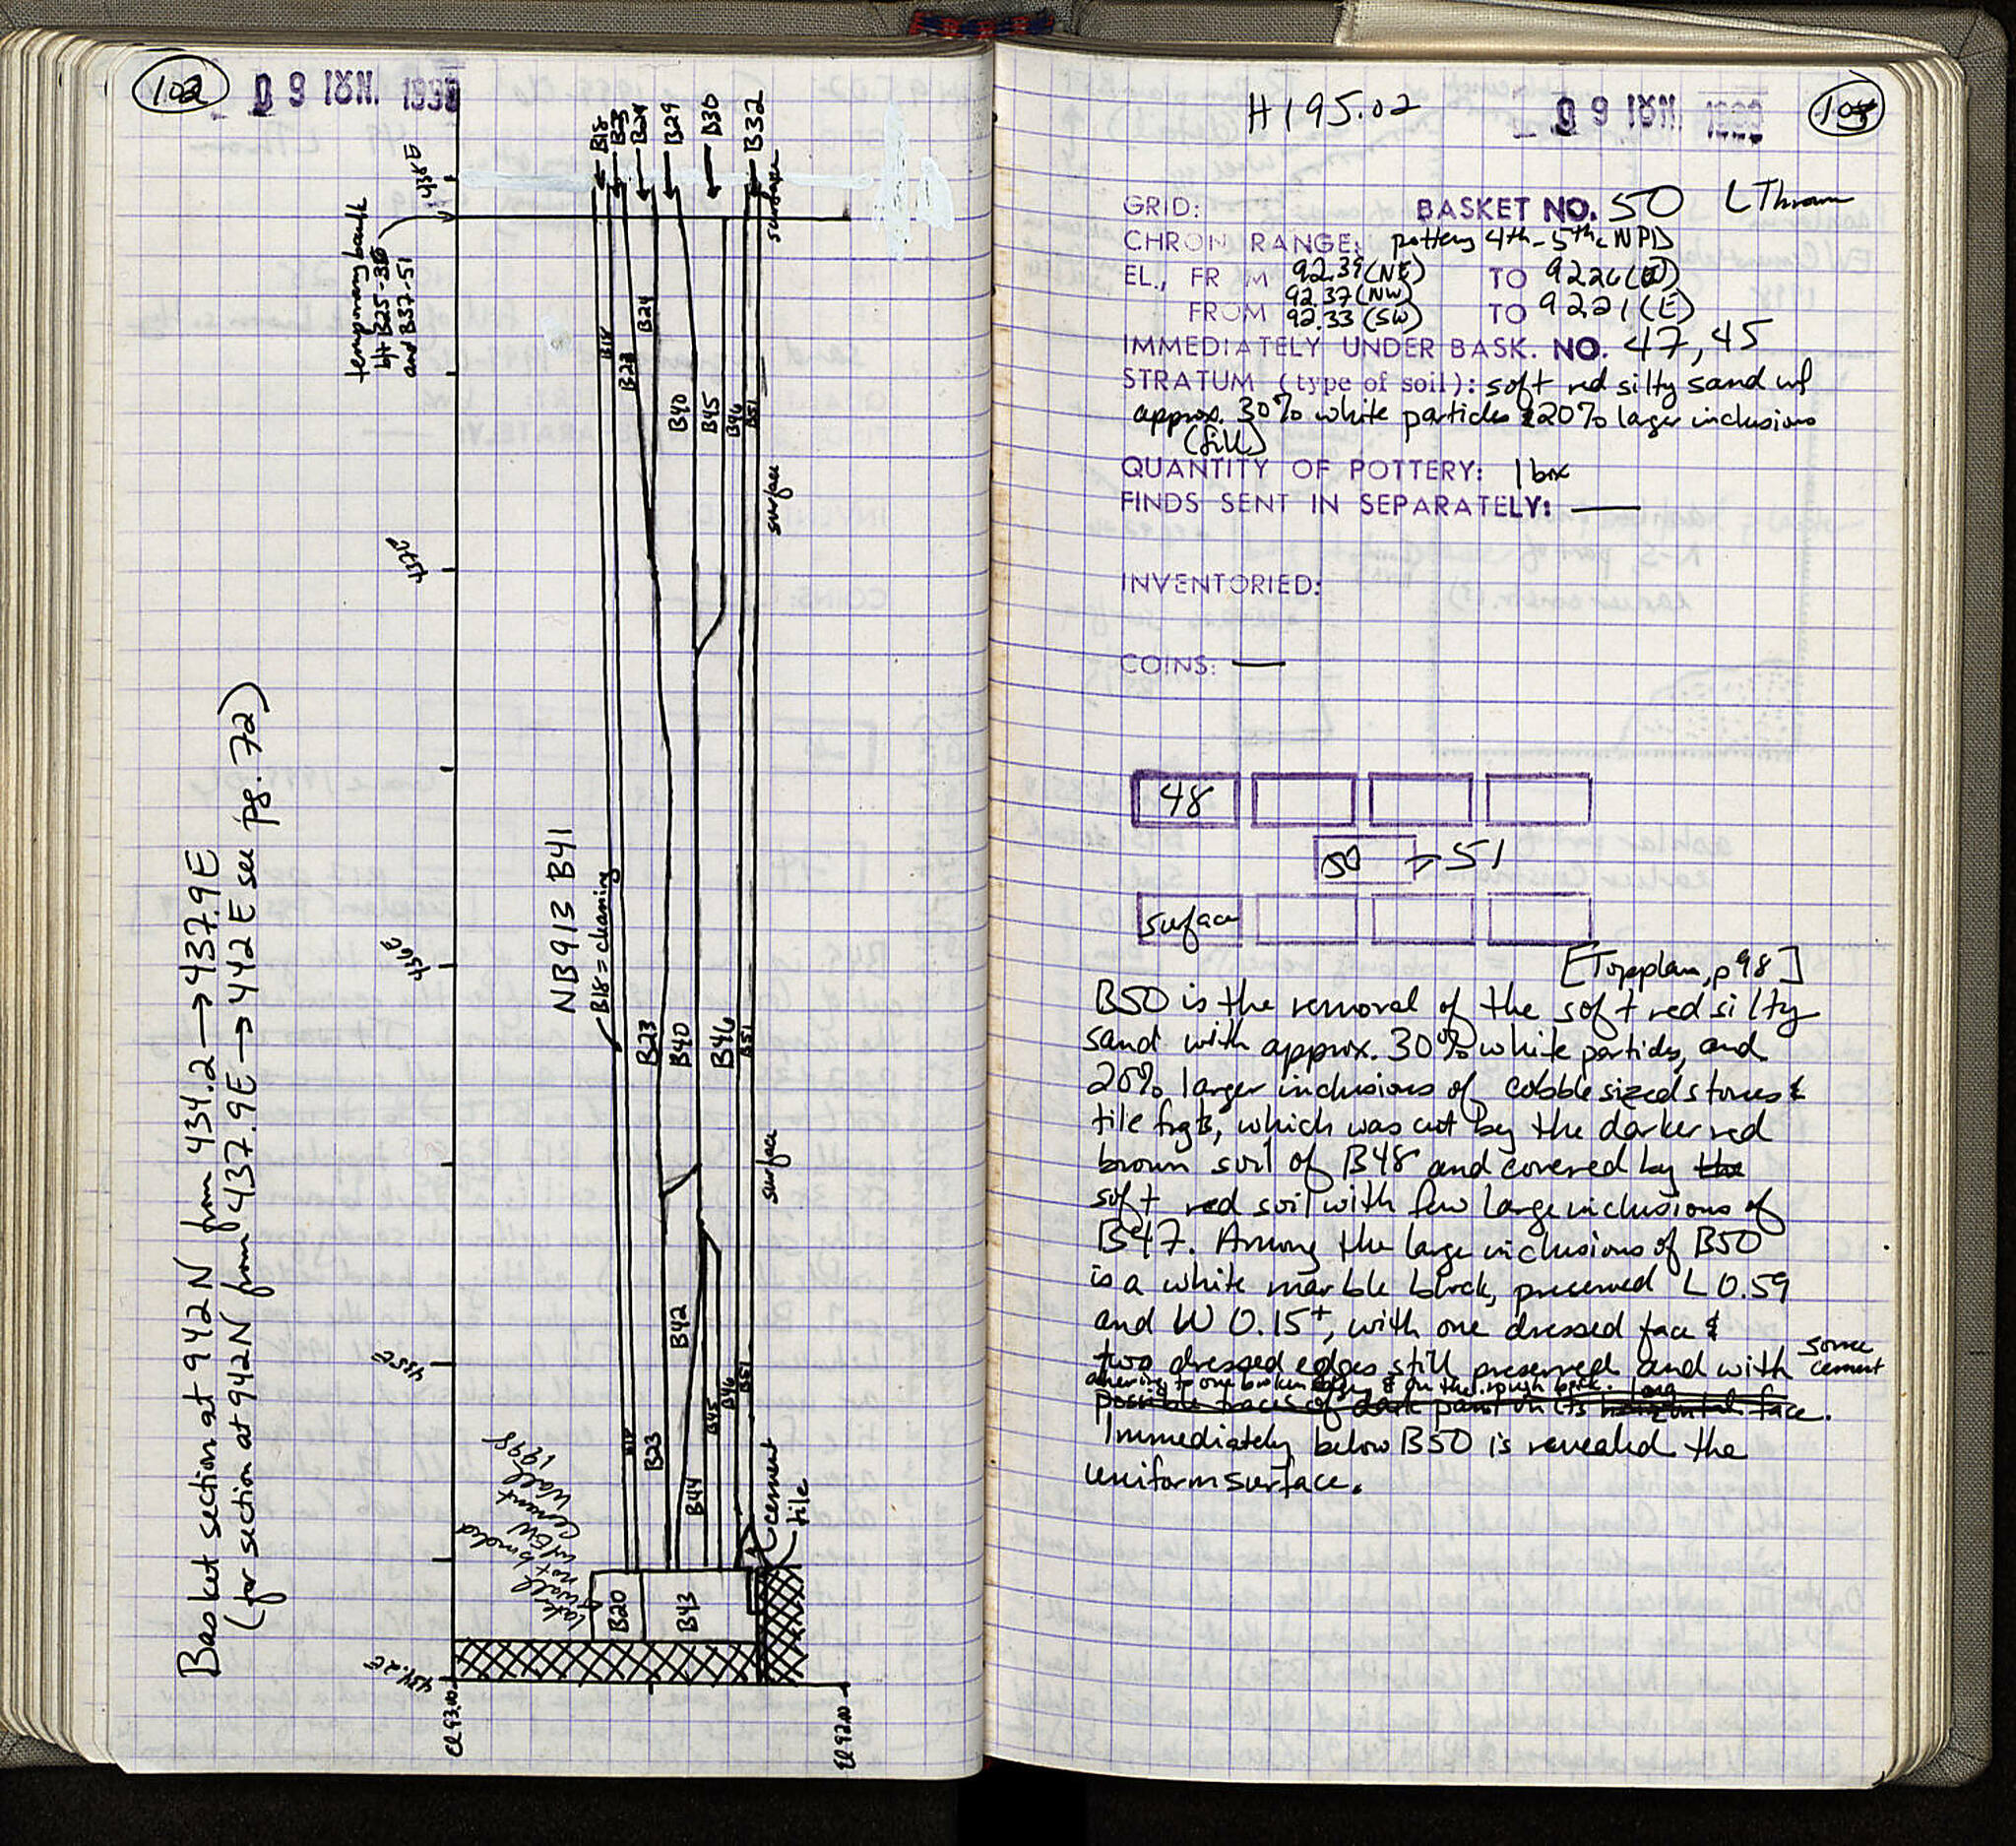 102
09 ΙΟΥΝ. 1998
Basket section at 942 N from 434.2 → 437.9 E
(for section at 942N from 437.9E → 442 E see pg. 72)
temporary baulk
b/t B25-36
and B37-51
438E
437E
436E
435E
434.2E
el 93.10
el 92.10
NB913 B41
B18 = cleaning
B18
B23
B24
B29
B30
B32
surface
B18
B23
B24
B40
B45
B46
B51
surface
B23
B40
B46
B51
surface
B18
B23
B42
B44
B45
B46
B51
cement
tile
late wall
not bonded
w/ EW
Cement
Wall
1998
B20
B43
H195.02
09 ΙΟΥΝ 1998
103
GRID: BASKET NO. 50 LThram
CHRON RANGE: pottery 4th-5thc NPD
EL., FR M 92.39 (NE) TO 92.26
92.37 (NW)
FROM 92.33 (SW) TO 92.21 (E)
IMMEDIATELY UNDER BASK. NO. 47, 45
STRATUM (type of soil): soft red silty sand w/
approx. 30% white particles & 20% larger inclusions
(fill)
QUANTITY OF POTTERY: 1 box
FINDS SENT IN SEPARATELY: —
INVENTORIED:
COINS: —
48
50 = 51
surface
[Topplan, p 98]
B50 is the removal of the soft red silty
sand with approx. 30% white particles, and
20% larger inclusions of cobble sized stones &
tile frgts, which was cut by the darker red
brown soil of B48 and covered by the
soft red soil with few large inclusions of
B47. Among the large inclusions of B50
is a white marble block, preserved L 0.59
and W 0.15+, with one dressed face &
two dressed edges still preserved and with some cement
adhering to one broken edge & on the rough back.
possible traces of dark paint on its horizontal long face.
Immediately below B50 is revealed the
uniform surface.